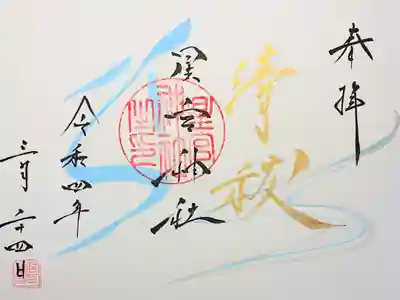 奉拝
清祓
星宮神社
令和四年
三月二十四日